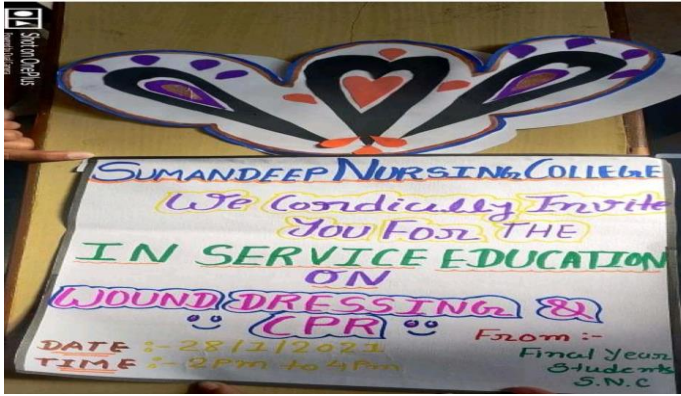 Shot on OnePlus
SUMANDEEP NURSING COLLEGE
We Cordically Invite
You For THE
IN SERVICE EDUCATION
ON
WOUND DRESSING &
CPR
From :-
DATE :- 28/1/2021
Final Year
TIME :- 2 Pm to 4 Pm
Students
S.N.C